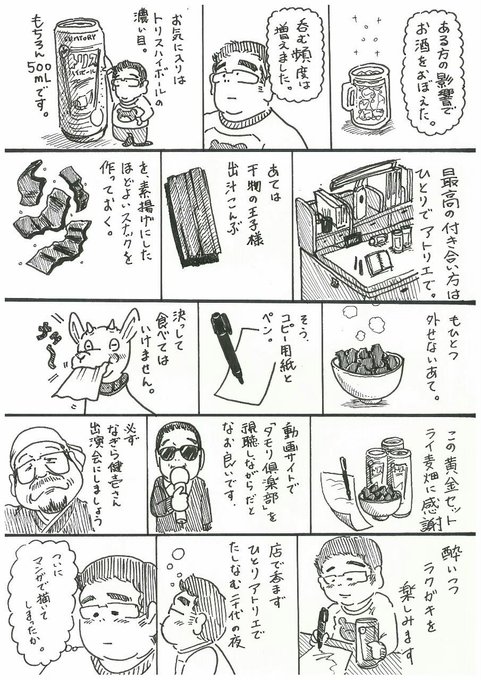 ある方の影響で
お酒をおぼえた。
呑む頻度は
増えました。
お気に入りは
トリスハイボールの
濃い目。
もちろん
500mLです。
SUNTORY
トリス
ハイボール
最高の付き合い方は
ひとりでアトリエで。
あては
干物の王子様
出汁こんぶ
を、素揚げにした
ほどよいスナックを
作っておく。
もひとつ
外せないあて。
そう、
コピー用紙と
ペン。
決して
食べては
いけません。
この黄金セット
ライ麦畑に感謝
動画サイトで
「タモリ倶楽部」を
視聴しながらだと
なお良いです。
必ず
なぎら健壱さん
出演会にしましょう
酔いつつ
ラクガキを
楽しみます
店で呑まず
ひとりアトリエで
たしなむ二千代の夜
ついに
マンガで描いて
しまったか。